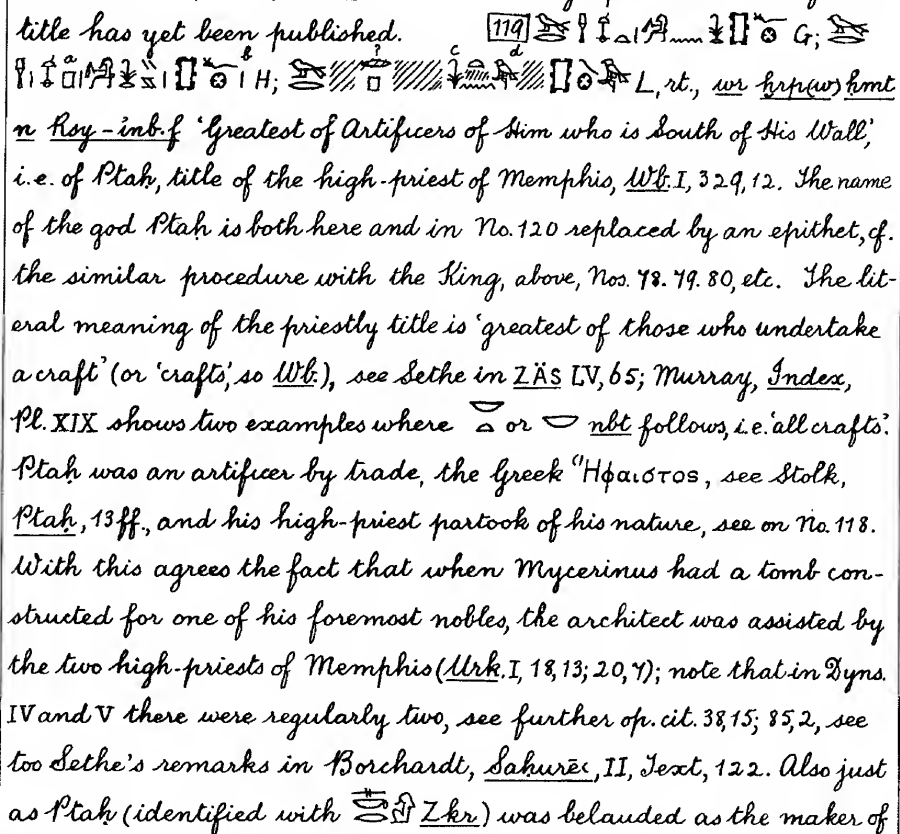 title has yet been published. 119 G;
H; L, rt., wr ḫrp(w) ḥmt
n Rsy-inb.f 'Greatest of Artificers of Him who is South of His Wall,'
i.e. of Ptaḥ, title of the high-priest of Memphis, Wb. I, 329, 12. The name
of the god Ptaḥ is both here and in No. 120 replaced by an epithet, cf.
the similar procedure with the King, above, Nos. 78. 79. 80, etc. The lit-
eral meaning of the priestly title is 'greatest of those who undertake
a craft' (or 'crafts', so Wb.), see Sethe in ZÄS LV, 65; Murray, Index,
Pl. XIX shows two examples where 𓎟𓏏 or 𓎟 nbt follows, i.e. 'all crafts'.
Ptaḥ was an artificer by trade, the Greek Ἥφαιστος, see Stolk,
Ptaḥ, 13 ff., and his high-priest partook of his nature, see on No. 118.
With this agrees the fact that when Mycerinus had a tomb con-
structed for one of his foremost nobles, the architect was assisted by
the two high-priests of Memphis (Urk. I, 18, 13; 20, 7); note that in Dyns.
IV and V there were regularly two, see further op. cit. 38, 15; 85, 2, see
too Sethe's remarks in Borchardt, Saḥurēʿ, II, Text, 122. Also just
as Ptaḥ (identified with Zkr) was belauded as the maker of